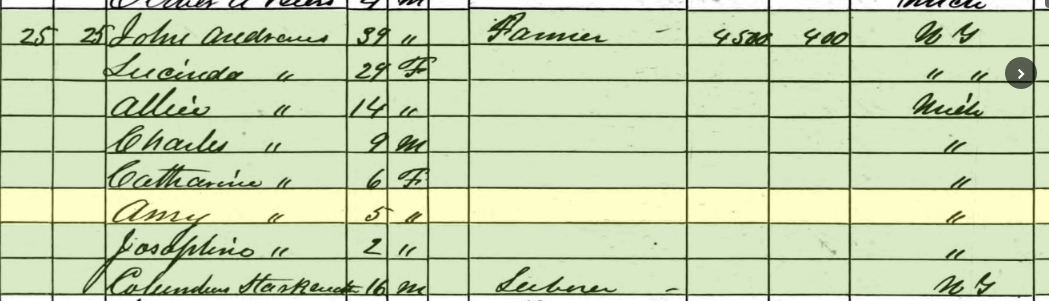 Mich
25 25 John Andrews 39 " Farmer 4500 400 N Y
Lucinda " 29 F " "
Allie " 14 " Mich
Charles " 9 m "
Catharine " 6 F "
Amy " 5 " "
Josephine " 2 " "
Columbus 16 m Laborer - N Y